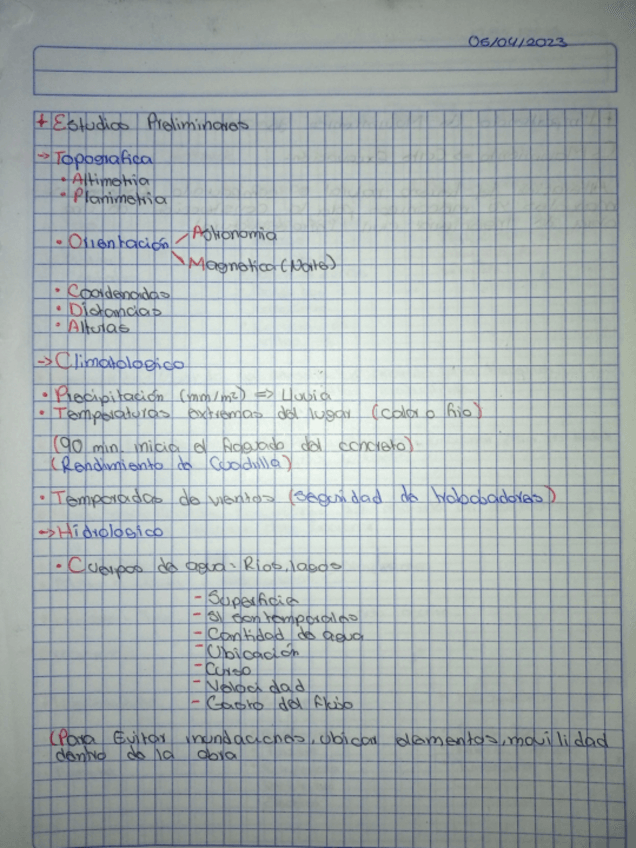 06/04/2023
+ Estudios Preliminares
→ Topografica
• Altimetria
• Planimetria
• Orientación
Astronomia
Magnetica (Norte)
• Coordenadas
• Distancias
• Alturas
→ Climatologico
• Precipitación (mm/m²) => Lluvia
• Temperaturas extremas del lugar (calor o frio)
(90 min. inicia el fraguado del concreto)
(Rendimiento de Cuadrilla)
• Temporadas de vientos (seguridad de trabajadores)
→ Hidrologico
• Cuerpos de agua: Rios, lagos
- Superficie
- Si son temporales
- Cantidad de agua
- Ubicación
- Curso
- Velocidad
- Gasto del flujo
(Para Evitar inundaciones, ubicar elementos, movilidad
dentro de la obra